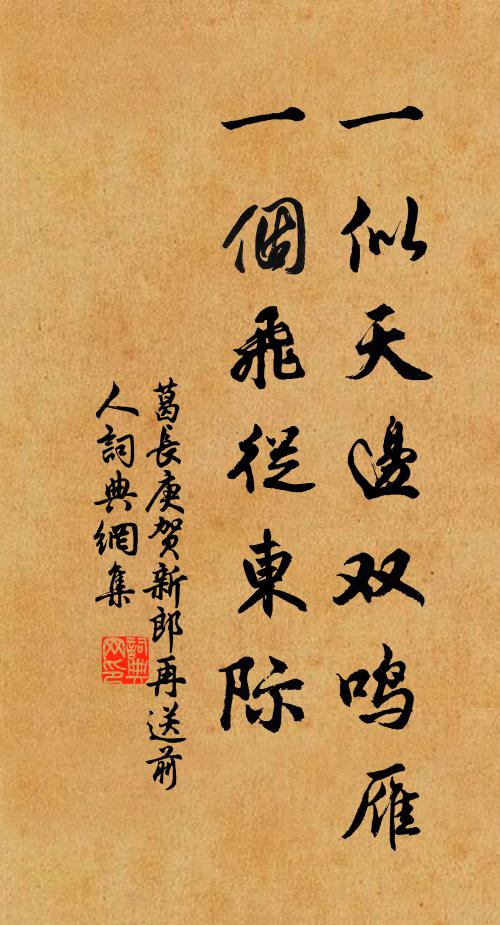 一似天邊双鸣雁
一個飛從東际
葛長庚贺新郎再送前
人詞典網集
詞典
网印